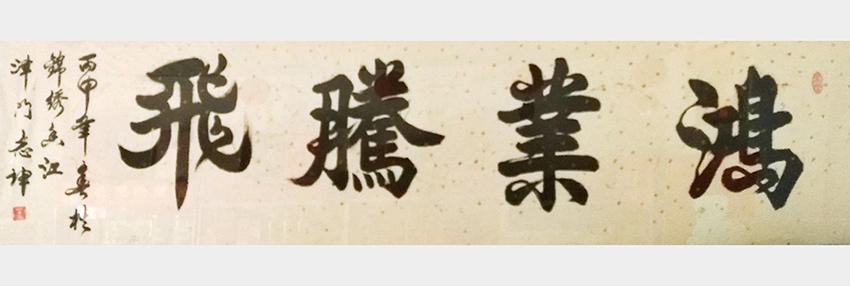 鴻業騰飛
丙申年春於
錦綉香江
津門志坤